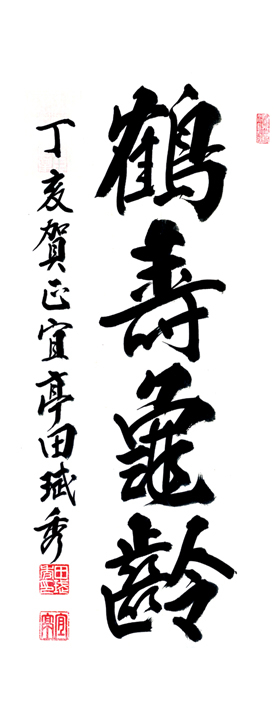 鶴壽龜齡
丁亥賀正宜亭田珷秀